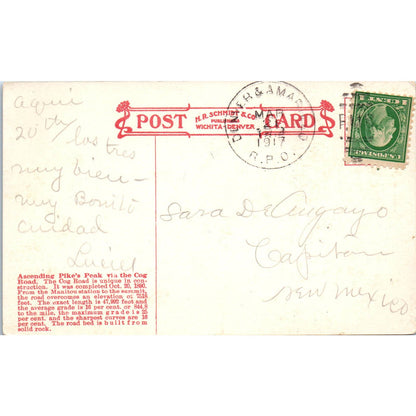 POST CARD
H.R. SCHMIDT & CO.
PUBLISHERS
WICHITA - DENVER
DENVER & AMARILLO
MAR
6
1917
R.P.O.
R.
aqui
20th los tres
muy bien –
muy Bonito
ciudad
Sara De
Capitan
New Mexico
Ascending Pike's Peak via the Cog
Road. The Cog Road is unique in con-
struction. It was completed Oct. 20, 1890.
From the Manitou station to the summit,
the road overcomes an elevation of
feet. The exact length is 47,992 feet and
the average grade is 16 per cent. or 844.8
to the mile, the maximum grade is 25
per cent. and the sharpest curves are 16
per cent. The road bed is built from
solid rock.